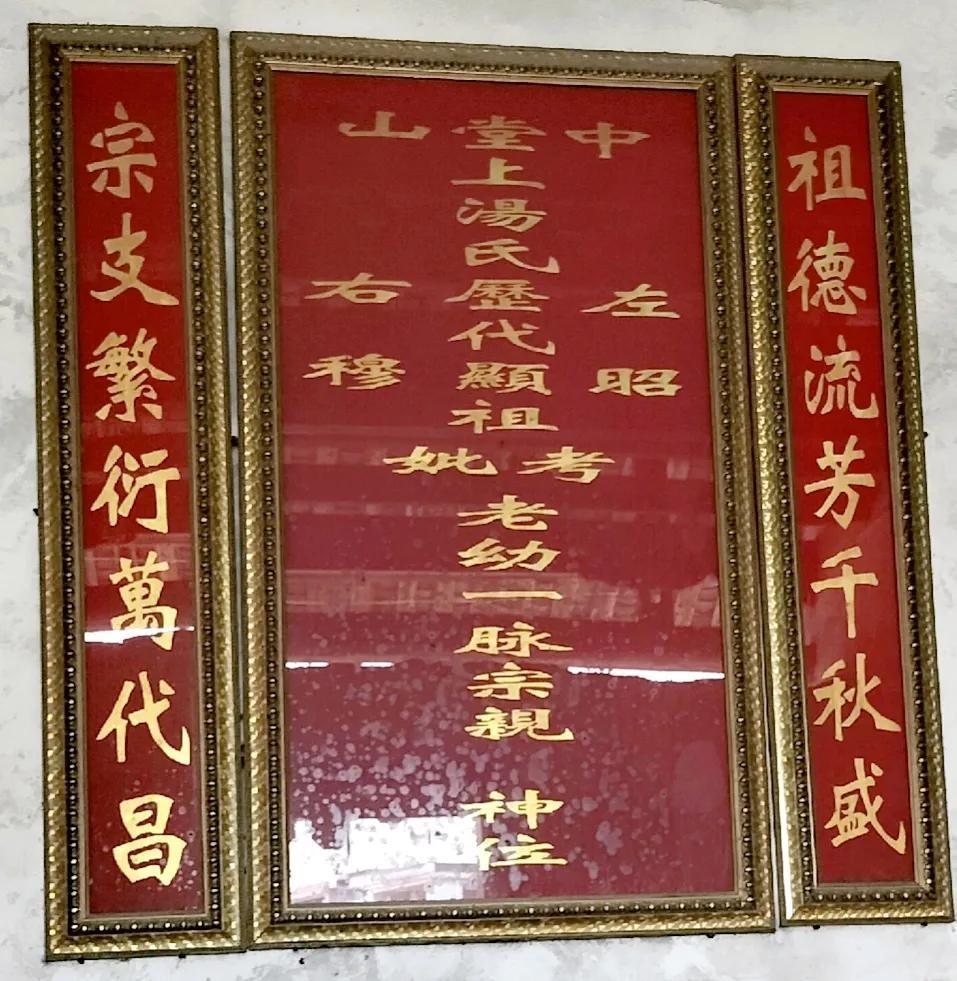 祖德流芳千秋盛
中山
左昭
堂上湯氏歷代顯祖考妣老幼一脉宗親神位
右穆
宗支繁衍萬代昌